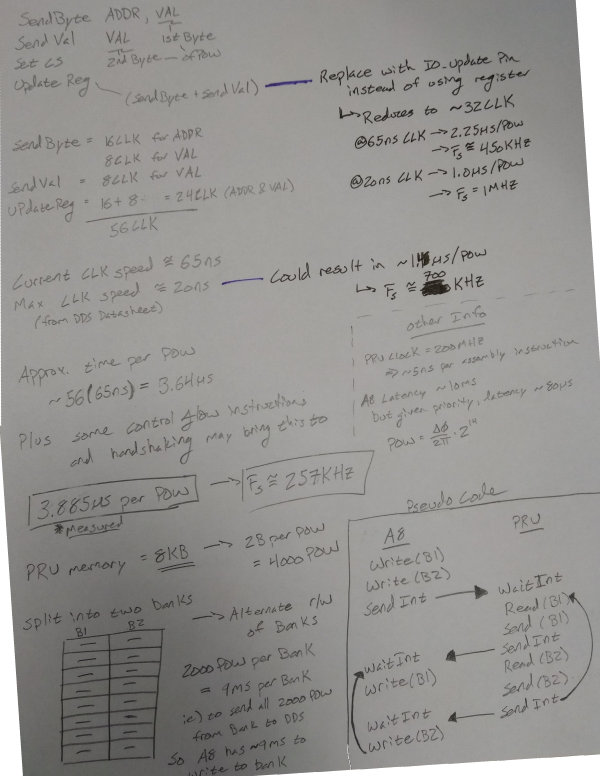 SendByte ADDR, VAL
1st Byte
Send Val VAL
2nd Byte — of POW
Set CS
Update Reg
(SendByte + Send Val)
Replace with IO_update Pin
instead of using register
↳ Reduces to ~32CLK
@65ns CLK → 2.25μs/POW
→ Fs ≅ 450KHz
@20ns CLK → 1.0μs/POW
→ Fs = 1MHz
SendByte = 16CLK for ADDR
8CLK for VAL
Send Val = 8CLK for VAL
UPdateReg = 16 + 8 = 24CLK (ADDR & VAL)
56CLK
Current CLK speed ≅ 65ns
Max CLK speed ≅ 20ns
(from DDS Datasheet)
Could result in ~1.4μs/POW
↳ Fs ≅ 700 KHz
Approx. time per POW
~ 56(65ns) = 3.64μs
Plus some control flow instructions
and handshaking may bring this to
3.885μs per POW → Fs ≅ 257KHz
*measured
other Info
PRU clock = 200MHz
⇒ ~5ns per assembly instruction
A8 Latency ~10ms
but given priority, latency ~80μs
POW = Δφ/2π · 2¹⁴
PRU memory = 8KB → 2B per POW
= 4000 POW
Split into two banks → Alternate r/w
of Banks
B1 B2
2000 POW per Bank
= 9ms per Bank
ie) to send all 2000 POW
from Bank to DDS
So A8 has ~9ms to
write to bank
Pseudo Code
A8 PRU
Write(B1)
Write(B2)
Send Int → WaitInt
Read(B1)
Send(B1)
WaitInt ← Send Int
Write(B1) Read(B2)
Send(B2)
WaitInt ← Send Int
Write(B2)